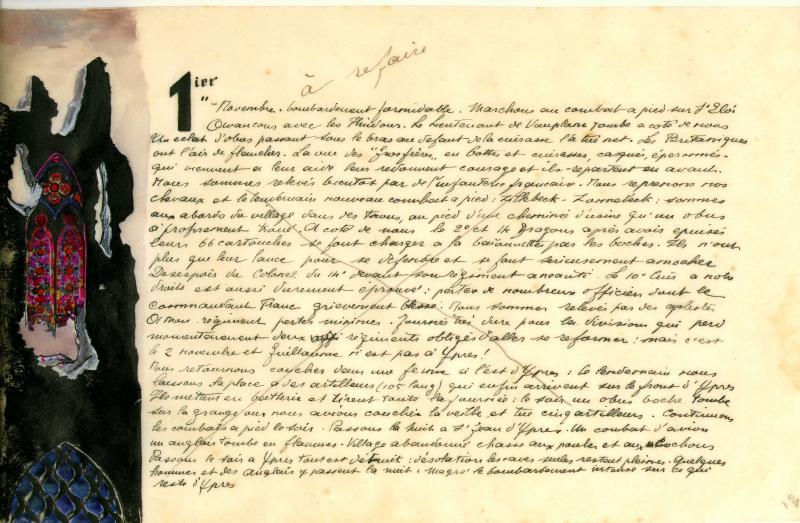 à refaire
1ier
"Novembre. bombardement formidable. Marchons au combat a pied sur St Eloi
avancons avec les Hindous. Le Lieutenant de Vomplane tombe a coté de nous
Un eclat d'obus passant sous le bras au defaut de la cuirasse l'a tué net. Les Britanniques
ont l'air de flancher. La vue des "Grosfrères, en bottes et cuirasses, casqués, éperonnés
qui viennent a leur aide leur redonnent courage et ils repartent en avant.
Nous sommes relevés bientot par de l'infanterie française. Nous reprenons nos
chevaux et le lendemain nouveau combat a pied: Zillebeck - Zonnebeck: sommes
aux abords du village dans des trous, au pied d'une cheminée d'usine qu'un obus
a proprement troué. A coté de nous le 20 et 14 Dragons après avoir épuisés
leurs 66 cartouches se font charger a la baïonnette par les boches. Ils n'ont
plus que leur lance pour se défendre et se font serieusement amocher
Desespoir du Colonel du 14e devant son régiment anéanti. Le 10e Cuirs a notre
droite est aussi durement éprouvé: pertes de nombreux officiers dont le
commandant Franc grievement blessé. Nous sommes relevés par des cyclistes.
A mon régiment pertes minimes. Journée très dure pour la division qui perd
momentanement deux régiments obligés d'aller se reformer: mais c'est
le 2 novembre et Guillaume n'est pas à Ypres!
Nous retournons coucher dans une ferme à l'est d'Ypres: le lendemain nous
laissons la place a des artilleurs (105 long) qui enfin arrivent sur le front d'Ypres
Ils mettent en batterie et tirent toute la journée: le soir un obus boche tombe
sur la grange ou nous avions couchés la veille et tue cinq artilleurs. Continuons
les combats a pied le soir. Passons la nuit a St Jean d'Ypres. Un combat d'avion
un anglais tombe en flammes. Village abandonné chasse aux poules et aux cochons
Passons le soir a Ypres tout est détruit: désolation les caves seules restent pleines. Quelques
hommes et des Anglais y passent la nuit: Magré le bombardement intense sur ce qui
reste d'Ypres